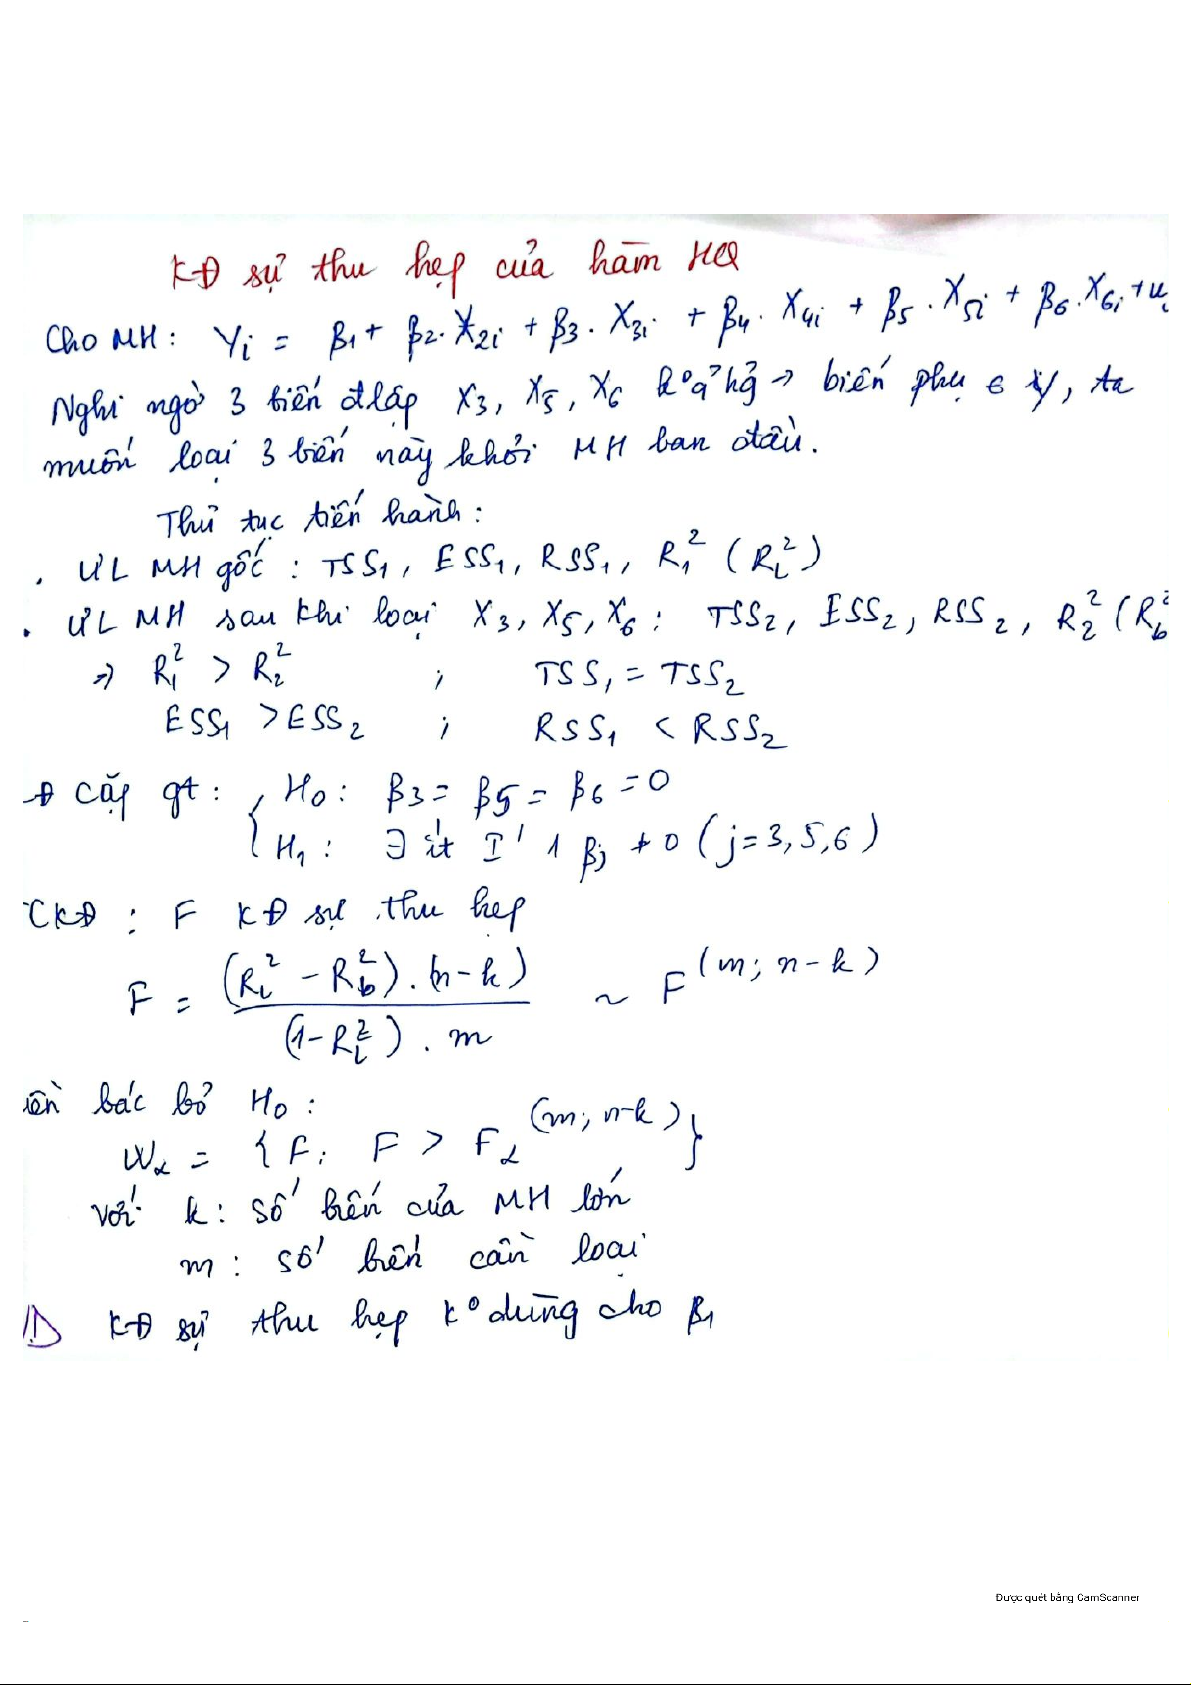 KĐ sự thu hẹp của hàm HQ
Cho MH: Yi = β1 + β2. X2i + β3. X3i + β4. X4i + β5. X5i + β6. X6i + ui
Nghi ngờ 3 biến đlập X3, X5, X6 k° a² hg → biến phụ ∈ Y, ta
muốn loại 3 biến này khỏi MH ban đầu.
Thủ tục tiến hành:
. ƯL MH gốc: TSS1, ESS1, RSS1, R1² (RL²)
. ƯL MH sau khi loại X3, X5, X6: TSS2, ESS2, RSS2, R2² (Rb²
⇒ R1² > R2² ; TSS1 = TSS2
ESS1 > ESS2 ; RSS1 < RSS2
→ Cặp gt: { H0: β3 = β5 = β6 = 0
H1: ∃ ít I' 1 βj ≠ 0 (j=3,5,6)
TCKĐ: F KĐ sự thu hẹp
F = (RL² - Rb²).(n-k) / (1-RL²).m ~ F(m; n-k)
iền bác bỏ H0:
Wα = {F: F > Fα(m; n-k)}
với k: số biến của MH lớn
m: số biến cần loại
KĐ sự thu hẹp k° dùng cho β1
Được quét bằng CamScanner